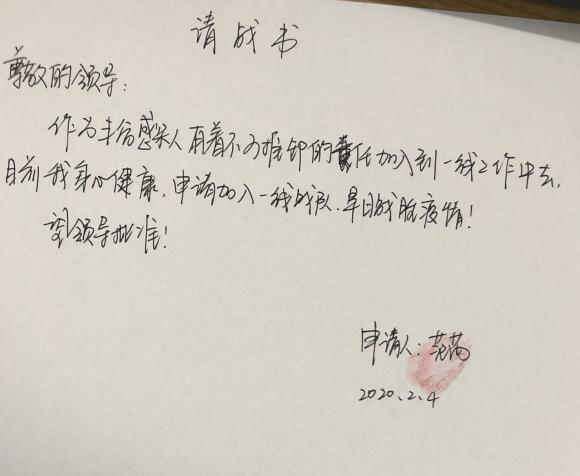 请战书
尊敬的领导:
作为丰台感染人有着不可推卸的责任加入到一线工作中去,
目前我身心健康,申请加入一线战队、早日战胜疫情!
望领导批准!
申请人:
2020.2.4